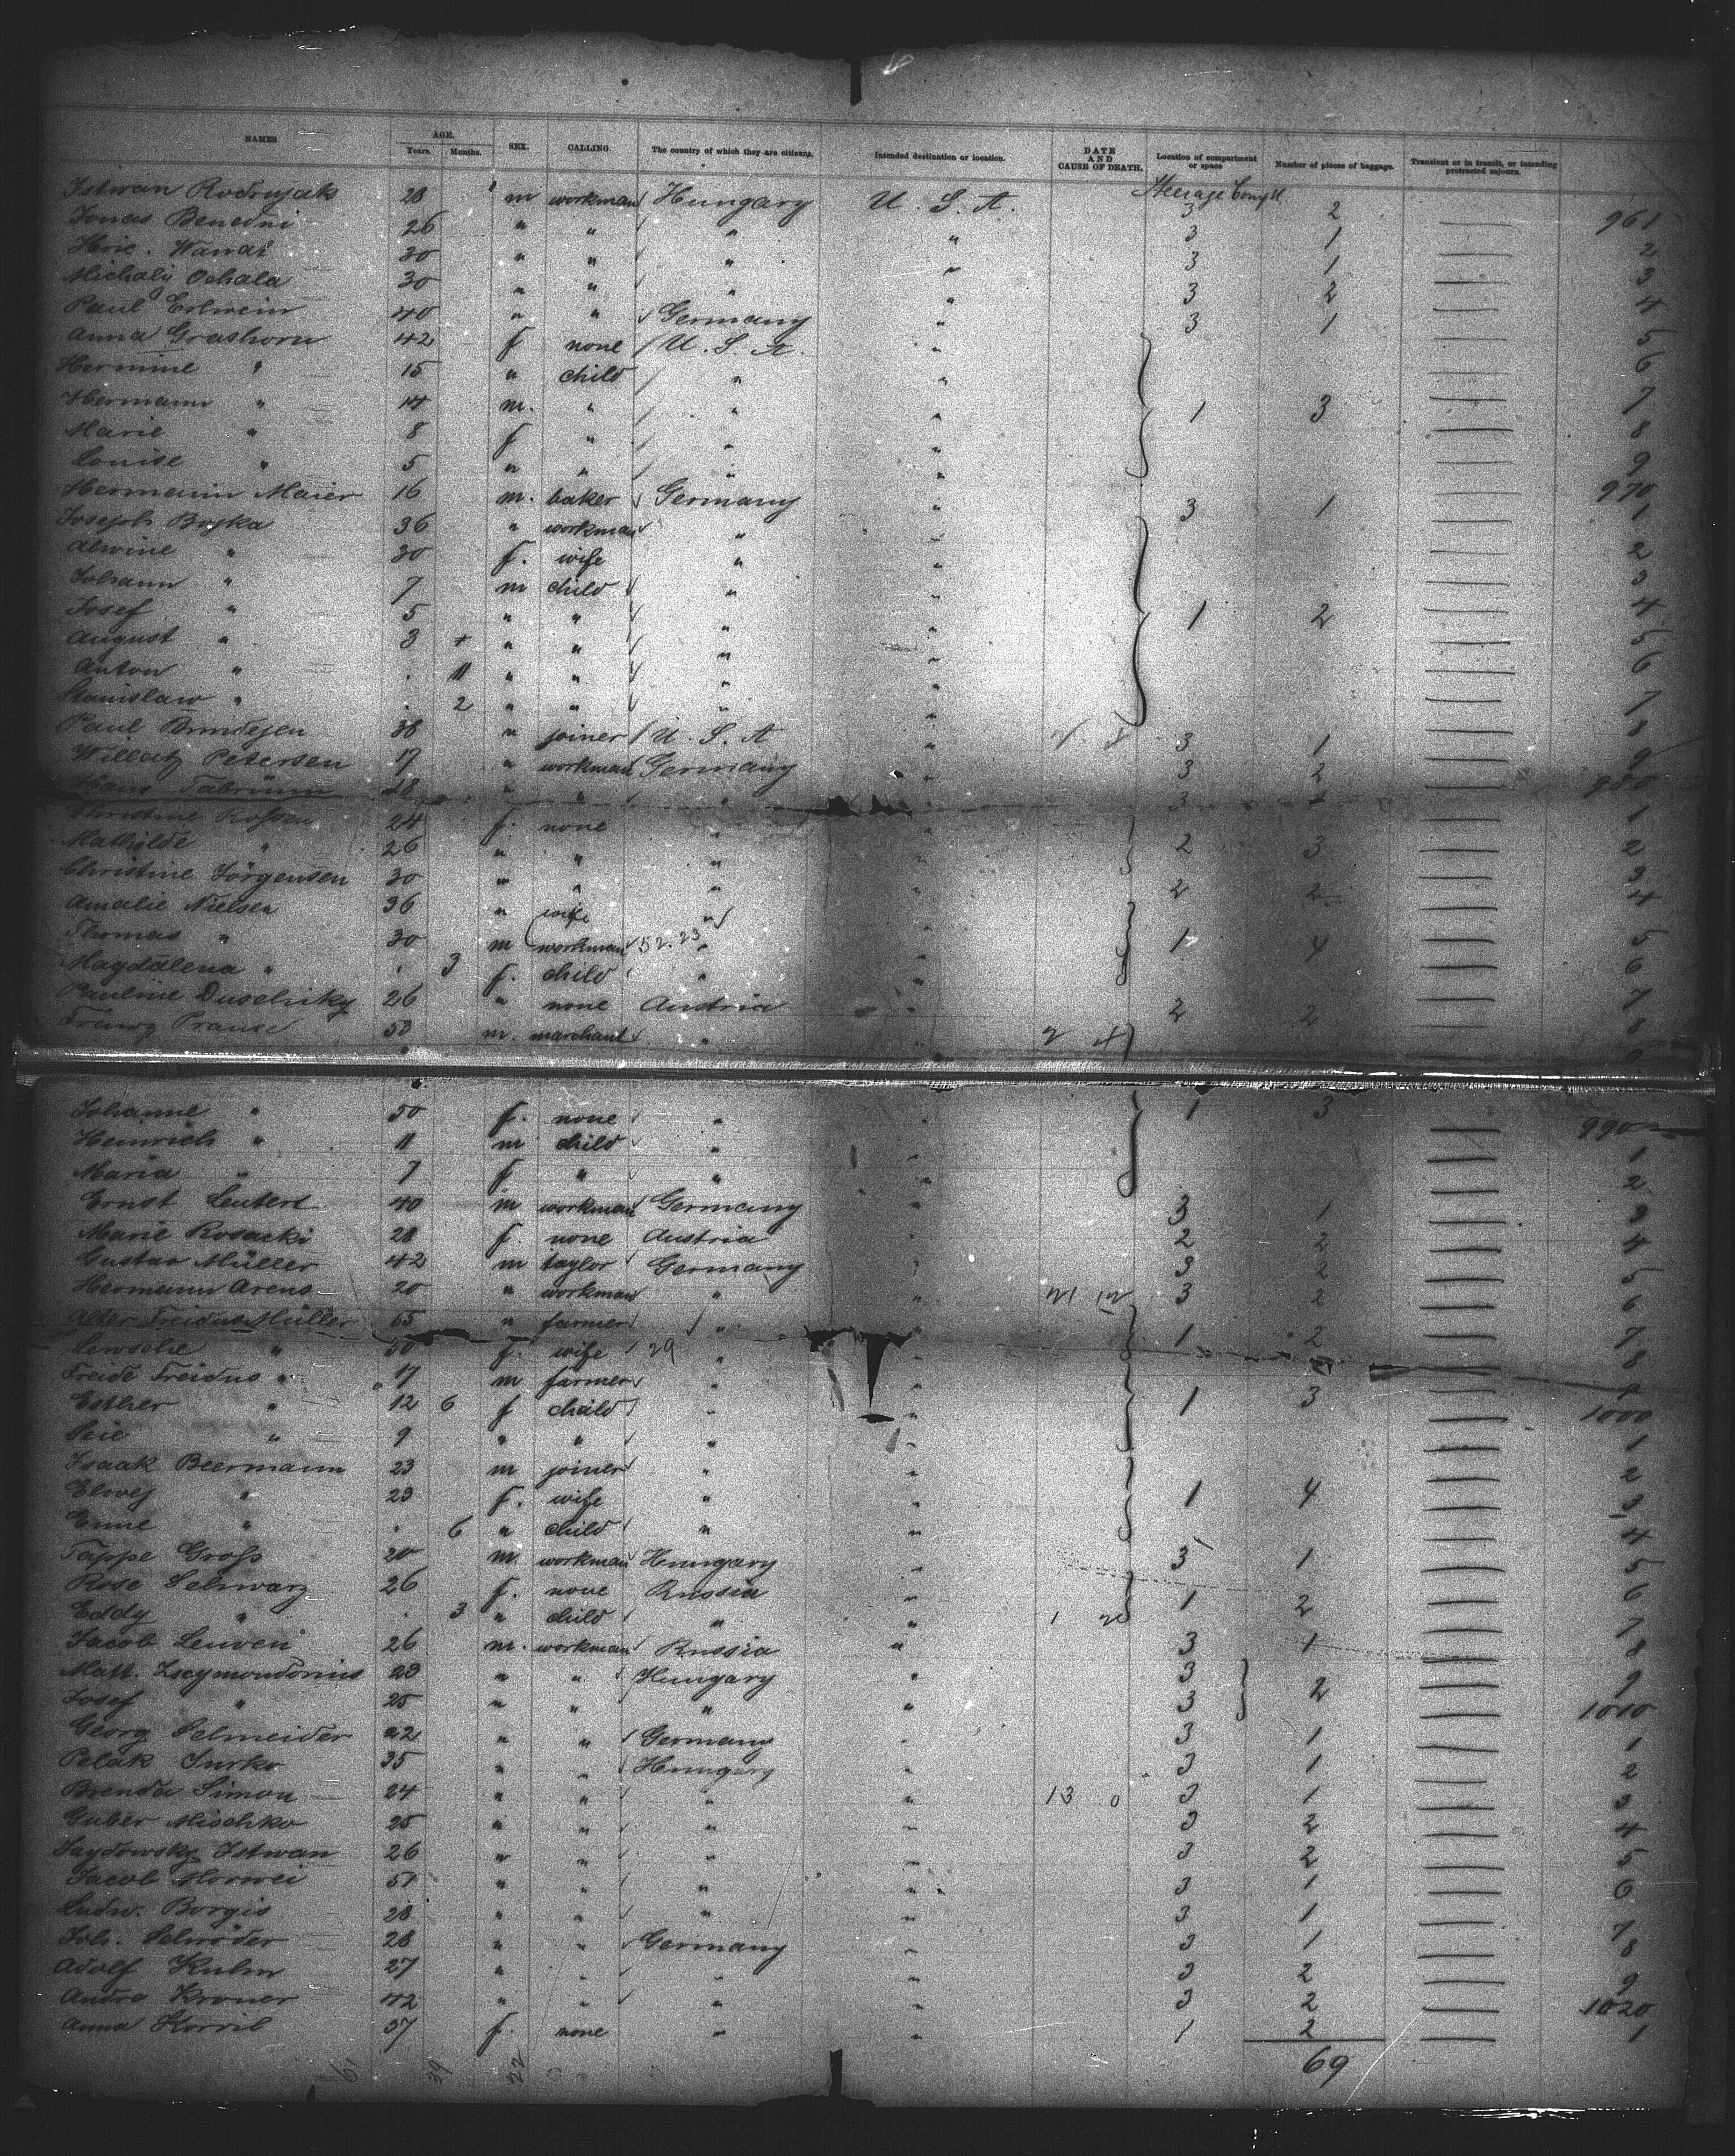 NAMES AGE. Years. Months. SEX. CALLING. The country of which they are citizens. Intended destination or location. DATE AND CAUSE OF DEATH. Location of compartment or space Number of pieces of baggage. Transient or in transit, or intending protracted sojourn.
Steerage Compt
Istwan 28 m workman Hungary U. S. A. 3 2 961
Jonas 26 " " " " 3 1 2
30 " " " " 3 1 3
Michaly Ochala 30 " " " " 3 2 4
Paul Erlwein 40 " " Germany " 3 1 5
Anna Grashorn 42 f none U. S. A. " 6
Hermine " 15 " child " " 7
Hermann " 14 m. " " " 1 3 8
Marie " 8 f " " " 9
Louise " 5 " " " " 970
Hermann Maier 16 m. baker Germany " 3 1 1
Joseph 36 " workman " " 2
Alwine " 30 f. wife " " 3
Johann " 7 m child " " 4
Josef " 5 " " " " 1 2 5
August " 3 " " " " 6
Anton " . 11 " " " " 7
Stanislaw " . 2 " " " " 8
Paul 38 " joiner U. S. A " 3 1 9
Petersen 17 " workman Germany " 3 2 980
Hans 18 " " " " 3 1
Christine 24 f. none " " 2
Mathilde " 26 " " " " 2 3 3
Christine Jörgensen 30 " " " " 2 2 4
Amalie Nielsen 36 " wife " " 5
Thomas " 30 m workman 52.23 " " 1 4 6
Magdalena " . 3 f. child " " 7
Pauline 26 " none Austria " 2 2 8
50 m. marchant " " 2 4
Johanne " 50 f. none " " 1 3 990
Heinrich " 11 m child " " 1
Maria " 7 f " " " 2
Ernst 40 m workman Germany " 3 1 3
Marie Rosacki 28 f. none Austria " 2 2 4
Gustav Müller 42 m taylor Germany " 3 2 5
Hermann Arens 20 " workman " " 21 12 3 2 6
Alter Freidus Müller 65 " farmer " " 1 2 7
" 50 f. wife 29 " " 8
Freide Freidus " 17 m farmer " " 9
Esther " 12 6 f child " " 1 3 1000
" 9 " " " " 1
Isaak Beermann 23 m joiner " " 2
" 23 f. wife " " 1 4 3
" . 6 " child " " 4
Tappe Gross 20 m. workman Hungary " 3 1 5
Rose Schwarz 26 f. none Russia " 1 2 6
Eddy " . 3 " child " " 1 2 7
Jacob 26 m. workman Russia " 3 1 8
Matt. 23 " " Hungary " 3 2 9
Josef " 25 " " " " 3 1010
Georg Schneider 22 " " Germany " 3 1 1
Pelak Jurko 35 " " Hungary " 3 1 2
Brenda Simon 24 " " " " 13 0 3 1 3
Guber Mischko 25 " " " " 3 2 4
Istwan 26 " " " " 3 2 5
Jacob 51 " " " " 3 1 6
Ludw. Borgis 28 " " " " 3 1 7
Joh. Schröder 28 " " Germany " 3 1 8
Adolf Kuhn 27 " " " " 3 2 9
Andre Kroner 42 " " " " 3 2 1020
Anna 57 f. none " " 1 2 1
61 39 22 69